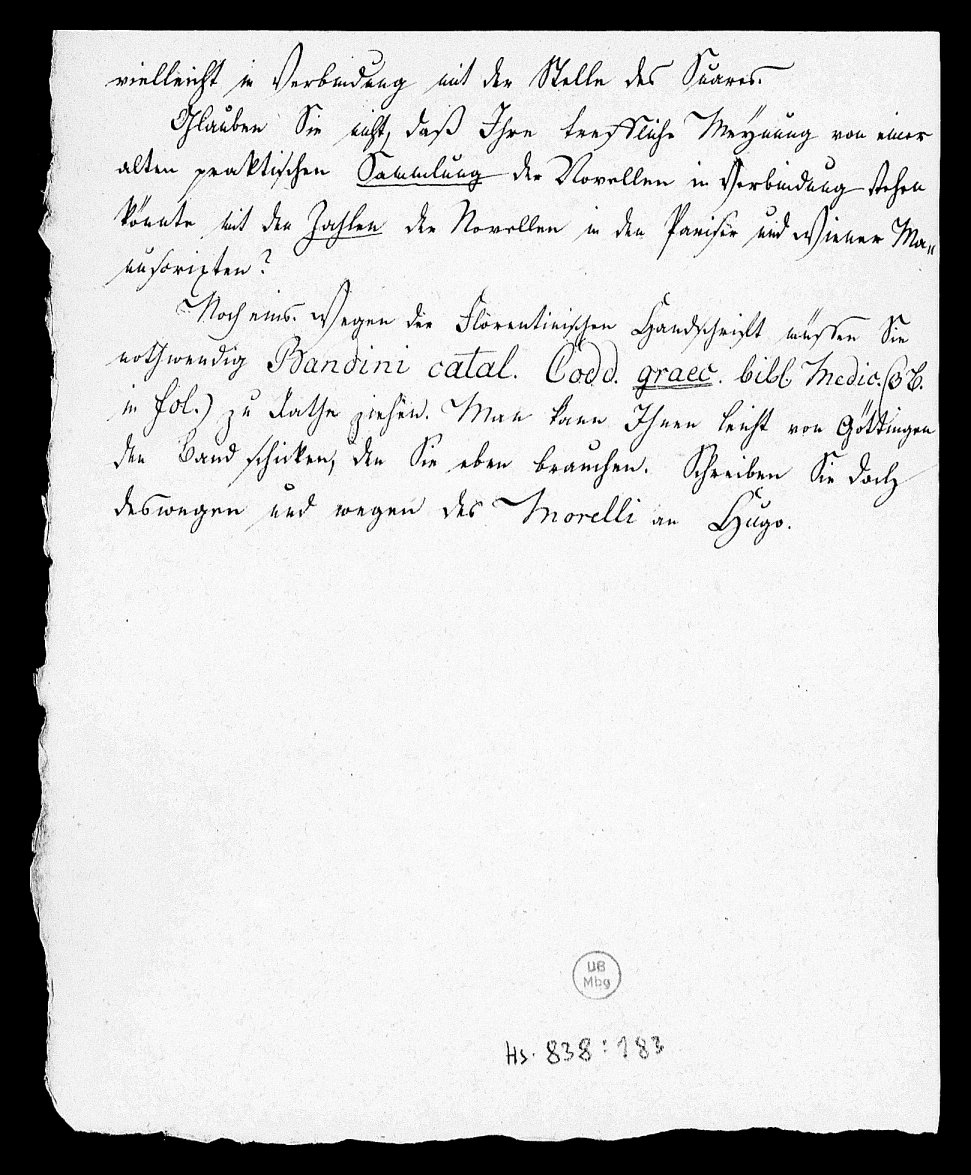 vielleicht in Verbindung mit der Stelle des Suares.
Glauben Sie nicht, daß Ihre treffliche Meynung von einer
alten praktischen Sammlung der Novellen in Verbindung stehen
könnte mit den Zahlen der Novellen in den Pariser und Wiener Ma=
nuscripten?
Noch eins. Wegen der Florentinischen Handschrift müssen Sie
nothwendig Bandini catal. Codd. graec. bibl. Medic. (3 B.
in fol.) zu Rathe ziehen. Man kann Ihnen leicht von Göttingen
den Band schicken, den Sie eben brauchen. Schreiben Sie doch
deswegen und wegen des Morelli an Hugo.
UB
Mbg
Hs. 838:183